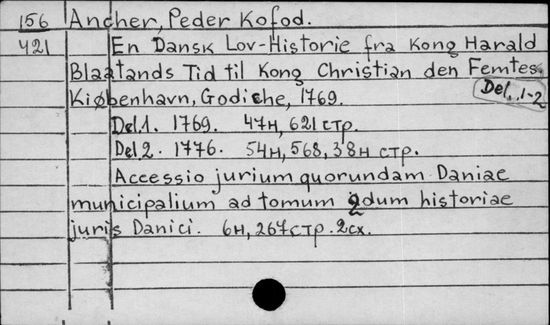 156 Ancher, Peder Kofod.
421 En Dansk Lov-Historie fra Kong Harald
Blaatands Tid til Kong Christian den Femtes.
Kiøbenhavn, Godiche, 1769.
Del. 1-2
Del.1. 1769. 47н, 621 стр.
Del.2. 1776. 54н, 568, 38н стр.
Accessio jurium quorundam Daniae
municipalium ad tomum 2dum historiae
juris Danici. 6н, 267 стр. 2сх.